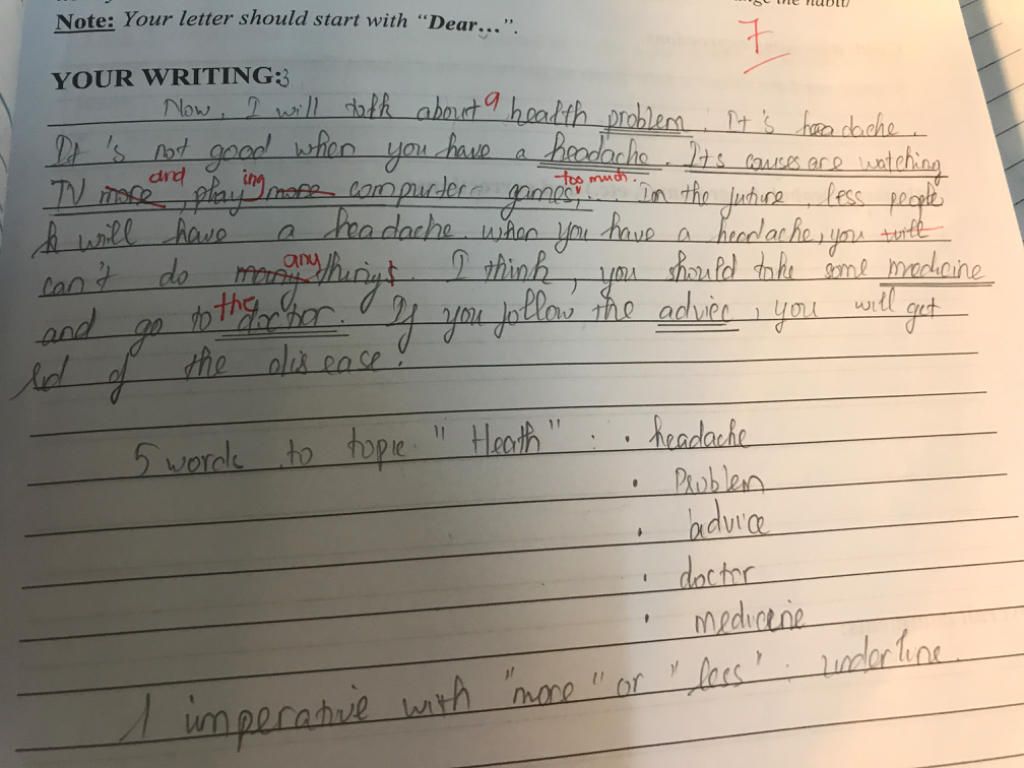 nge the habit/
Note: Your letter should start with “Dear…”.
7
YOUR WRITING:3
Now, I will talk about a health problem. It's headache.
It's not good when you have a headache. Its causes are watching
TV more and, playing more compurter games, too much... In the future, less people
will have a headache. when you have a headache, you will
can't do many any things. I think, you should take some medicine
and go to the doctor. If you follow the advice, you will get
of the disease.
5 words to topic "Heath" : • headache
• Problem
• advice
• doctor
• medicene
1 imperative with "more" or "less" : underline.